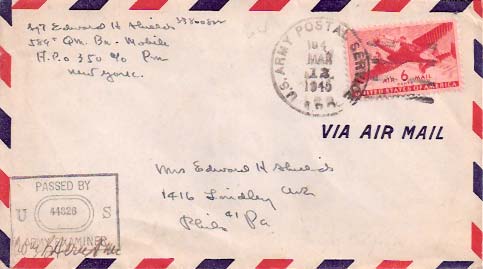 Sgt Edward H Shields
589th Qm. Bn - Mobile
A.P.O 350 c/o Pm
New York.
U.S. ARMY POSTAL SERVICE
MAR
13
1945
A.P.O.
AIR 6 MAIL
UNITED STATES OF AMERICA
VIA AIR MAIL
Mrs Edward H Shields
1416 Lindley Ave
Phila 41 Pa.
PASSED BY
U 44826 S
ARMY EXAMINER